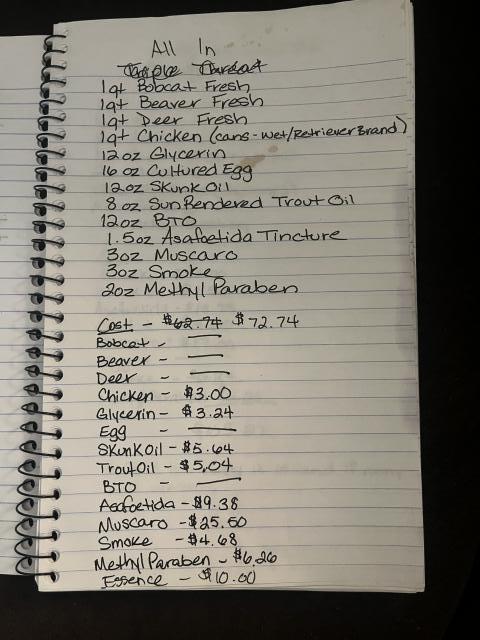 All In
Triple Threat
1qt Bobcat Fresh
1qt Beaver Fresh
1qt Deer Fresh
1qt Chicken (cans-wet/Retriever Brand)
12oz Glycerin
16 oz Cultured Egg
12oz Skunk Oil
8 oz Sun Rendered Trout Oil
12oz BTO
1.5oz Asafoetida Tincture
3oz Muscaro
3oz Smoke
2oz Methyl Paraben
Cost - $62.74 $72.74
Bobcat - —
Beaver - —
Deer - —
Chicken - $3.00
Glycerin - $3.24
Egg - —
Skunk Oil - $5.64
Trout Oil - $5,04
BTO - —
Asafoetida - $9.38
Muscaro - $25.50
Smoke - $4.68
Methyl Paraben - $6.26
Essence - $10.00